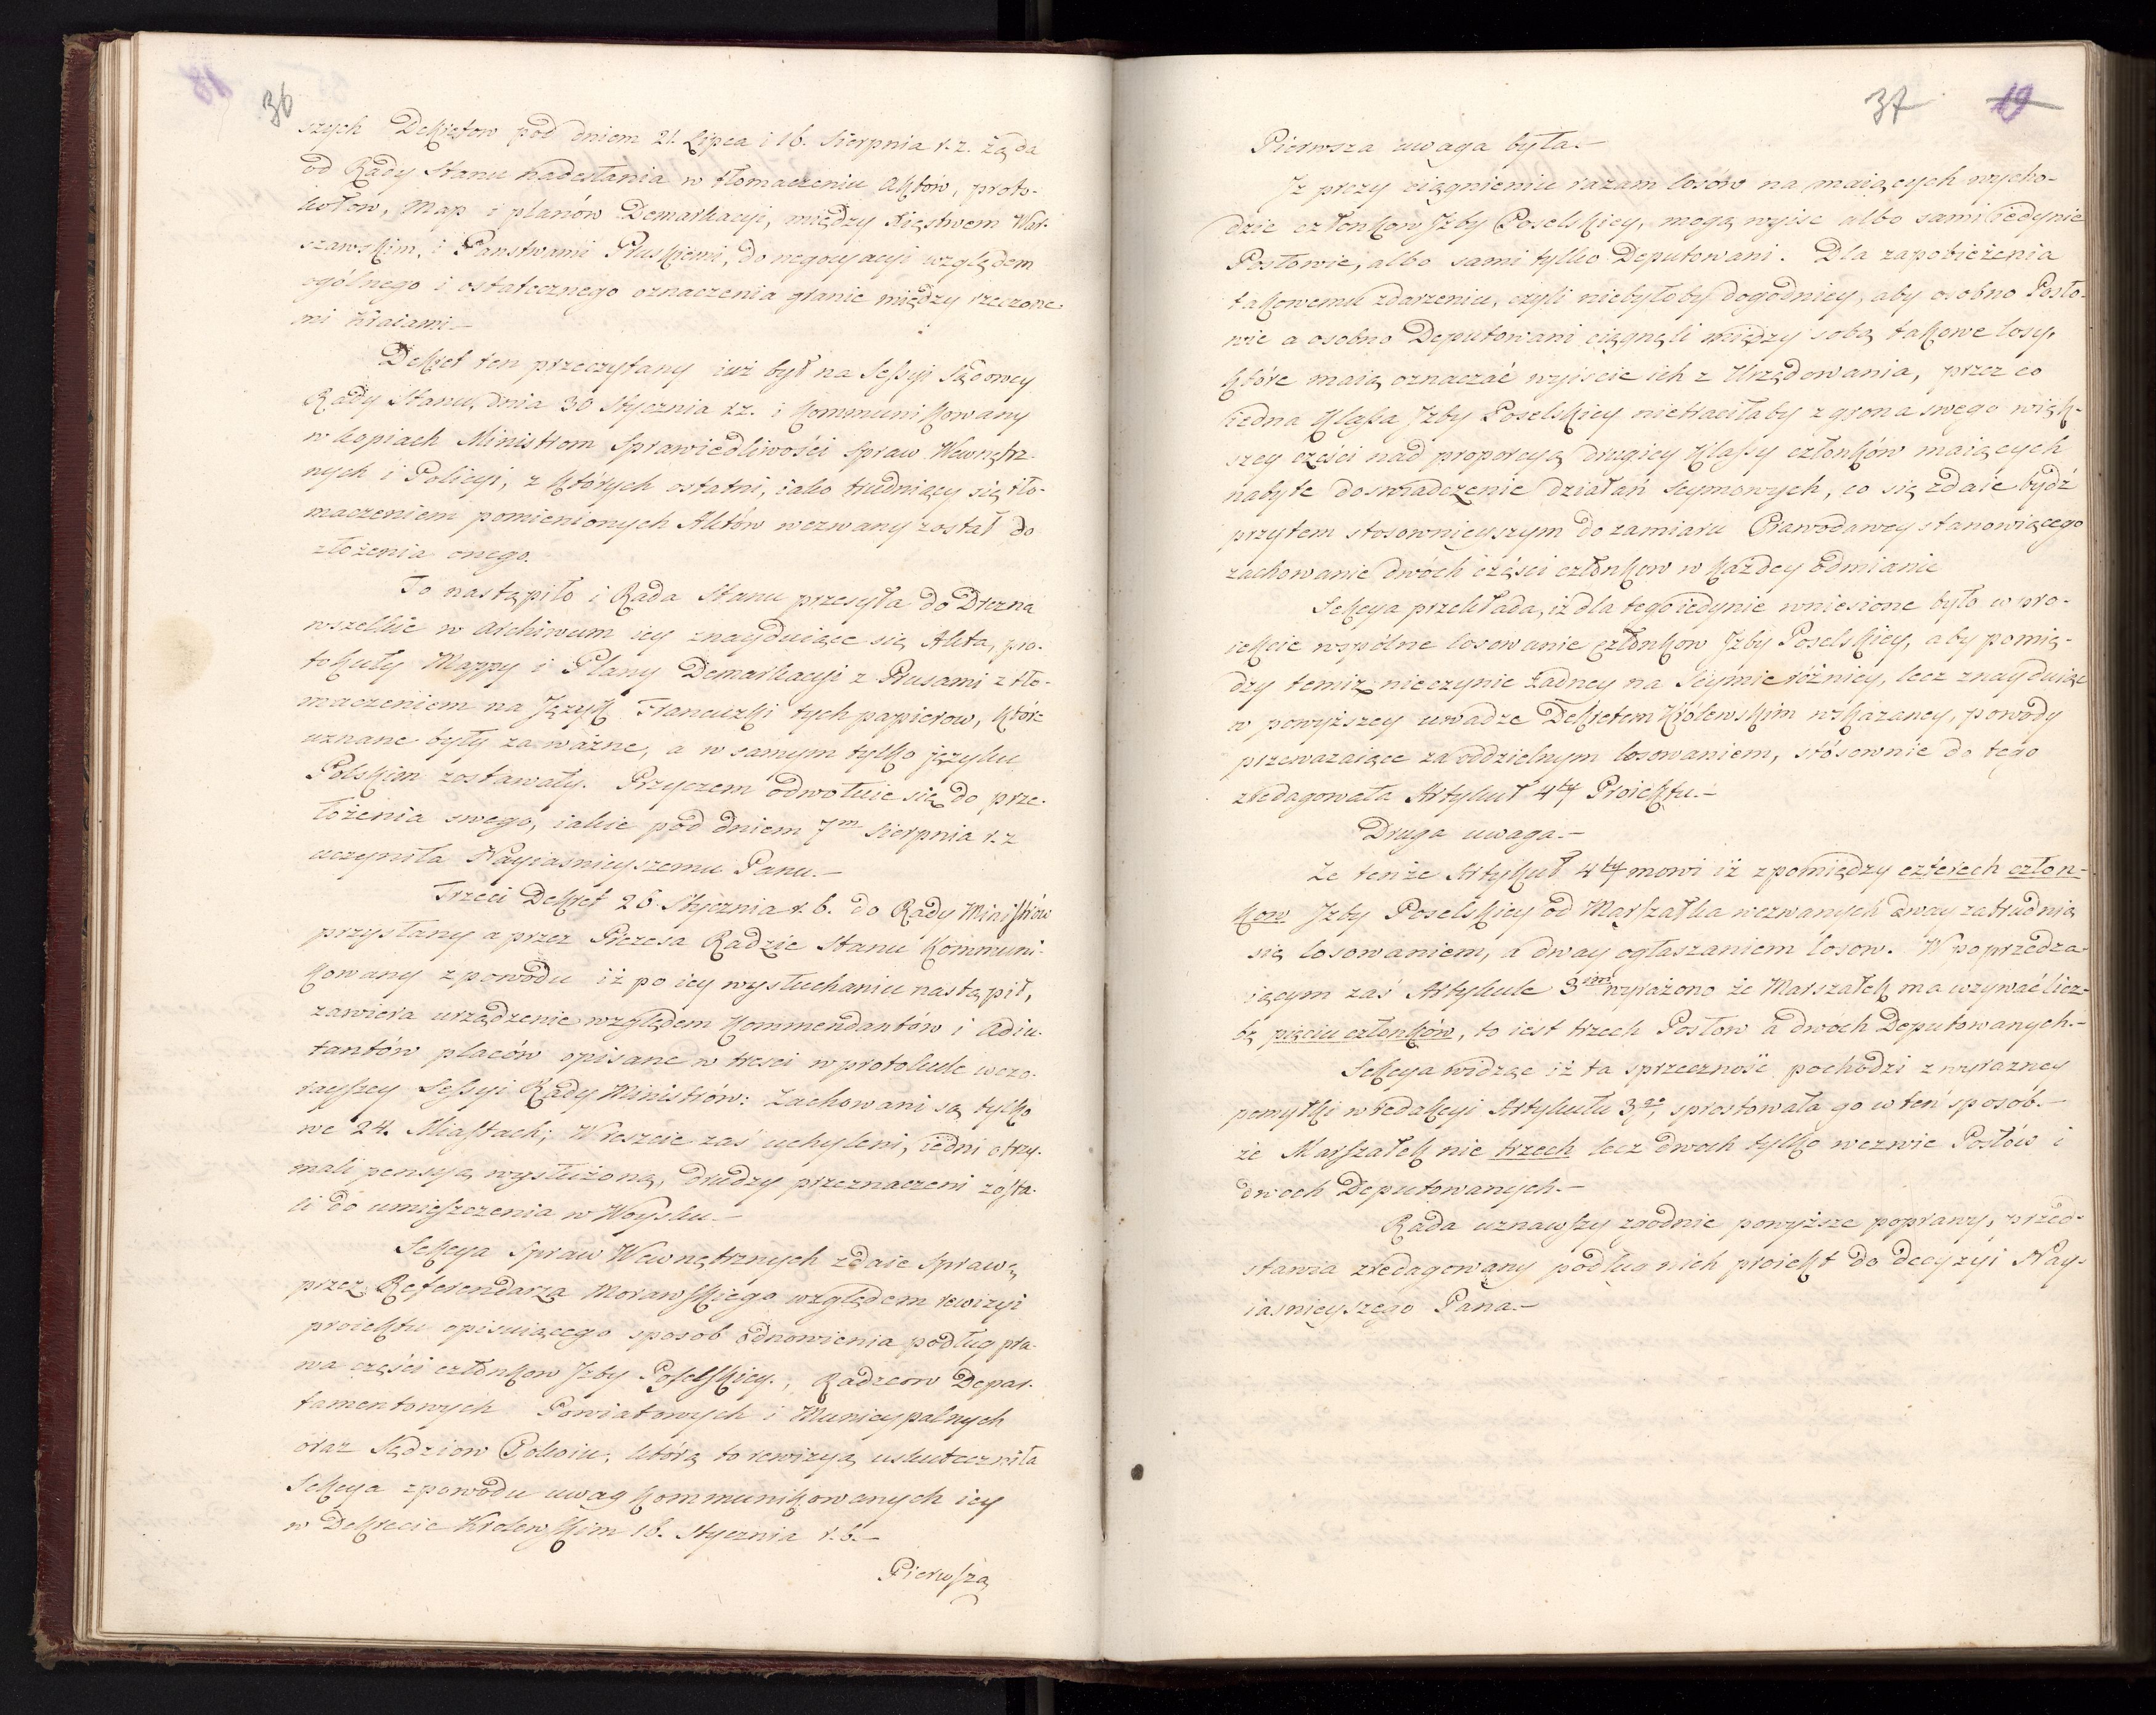 36
szych Dekretow pod dniem 21. Lipca i 16. Sierpnia r. z. żąda
od Rady Stanu nadesłania w tłomaczeniu Aktów, proto-
kołow, Map i planów Demarkacyi, między Xięstwem War-
szawskim, i Panstwami Pruskiemi, do negocyacyi względem
ogólnego i ostatecznego oznaczenia granic między rzeczone-
mi Kraiami.—
Dekret ten przeczytany iuż był na Sessyi Sądowey
Rady Stanu, dnia 30 Stycznia r.z. i Kommunikowany
w kopiach Ministrom Sprawiedliwości Spraw Wewnętrz-
nych i Policyi, z których ostatni, iako trudniący się tło-
maczeniem pomienionych Aktów wezwany został do
złożenia onego.
To nastąpiło i Rada Stanu przesyła do Drezna
wszelkie w Archiwum iey znayduiące się Akta, pro-
tokuły Mappy i Plany Demarkacyi z Prusami z tło-
maczeniem na Język Francuzki tych papierow, które
uznane były za ważne, a w samym tylko języku
Polskim zostawały. Przyczem odwołuie się do prze-
łożenia swego, iakie pod dniem 7m Sierpnia r. z
uczyniła Nayiasnieyszemu Panu.—
Trzeci Dekret 26 Stycznia r. b. do Rady Ministrów
przysłany a przez Prezesa Radzie Stanu Kommuni-
kowany z powodu iż po iey wysłuchaniu nastąpił,
zawiera urządzenie względem Kommendantów i Adiu-
tantów placów opisane w tresci w protokule wczo-
rayszey Sessyi Rady Ministrów: Zachowani są tylko
we 24. Miastach; W reszcie zaś uchyleni, iedni otrzy-
mali pensyą wysłużoną, drudzy przeznaczeni zosta-
li do umieszczenia w Woysku.—
Sekcya Spraw Wewnętrznych zdaie Sprawę
przez Referendarza Morawskiego względem rewizyi
proiektu opisuiącego sposob odnowienia podług pra-
wa części członkow Izby Poselskiey, Radzcow Depar-
tamentowych Powiatowych i Municypalnych
oraz Sędziow Pokoiu, którą to rewizyą uskuteczniła
Sekcya z powodu uwag kommunikowanych iey
w Dekrecie Krolewskim 18. Stycznia r. b.—
Pierwsza
37 19
Pierwsza uwaga była.—
Iż przy ciągnieniu razam losów na maiących wycho-
dzie członkow Izby Poselskiey, mogą wyisc albo sami iedynie
Posłowie, albo sami tylko Deputowani. Dla zapobieżenia
takowemu zdarzeniu, czyli niebyłoby dogodniey, aby osobno Posło-
wie a osobno Deputowani ciągnęli między sobą takowe losy,
które maią oznaczać wyiscie ich z Urzędowania, przez co
iedna Klassa Izby Poselskiey nietraciłaby z grona swego więk-
szey części nad proporcyą drugiey Klassy członków maiących
nabyte doswiadczenie działań Seymowych, co się zdaie bydź
przytem stosownieyszym do zamiaru Prawodawcy stanowiącego
zachowanie dwóch części członkow w każdey odmianie
Sekcya przekłada, iż dla tego iedynie wniesione było w pro-
iekcie wspólne losowanie członkow Izby Poselskiey, aby pomię-
dzy temiż nieczynić żadney na Seymie różnicy, lecz znayduiąc
w powyższey uwadze Dekretem Królewskim wskazaney, powody
przeważaiące za oddzielnym losowaniem, stósownie do tego
zredagowała Artykuł 4ty Proiektu.—
Druga uwaga.—
Że tenże Artykuł 4ty mowi iż z pomiędzy czterech człon-
kow Izby Poselskiey od Marszałka wezwanych dway zatrudnią
się losowaniem, a dway ogłaszaniem losow. W poprzedza-
iącym zaś Artykule 3cim wyrażono że Marszałek ma wzywać licz-
bę pięciu członków, to iest trzech Posłow a dwóch Deputowanych.—
Sekcya widząc iż ta sprzeczność pochodzi z wyrazney
pomyłki w redakcyi Artykułu 3go, sprostowała go w ten sposób.—
że Marszałek nie trzech lecz dwoch tylko wezwie Posłów i
dwoch Deputowanych.—
Rada uznawszy zgodnie powyższe poprawy, przed-
stawia zredagowany podług nich proiekt do decyzyi Nay-
iasnieyszego Pana.—